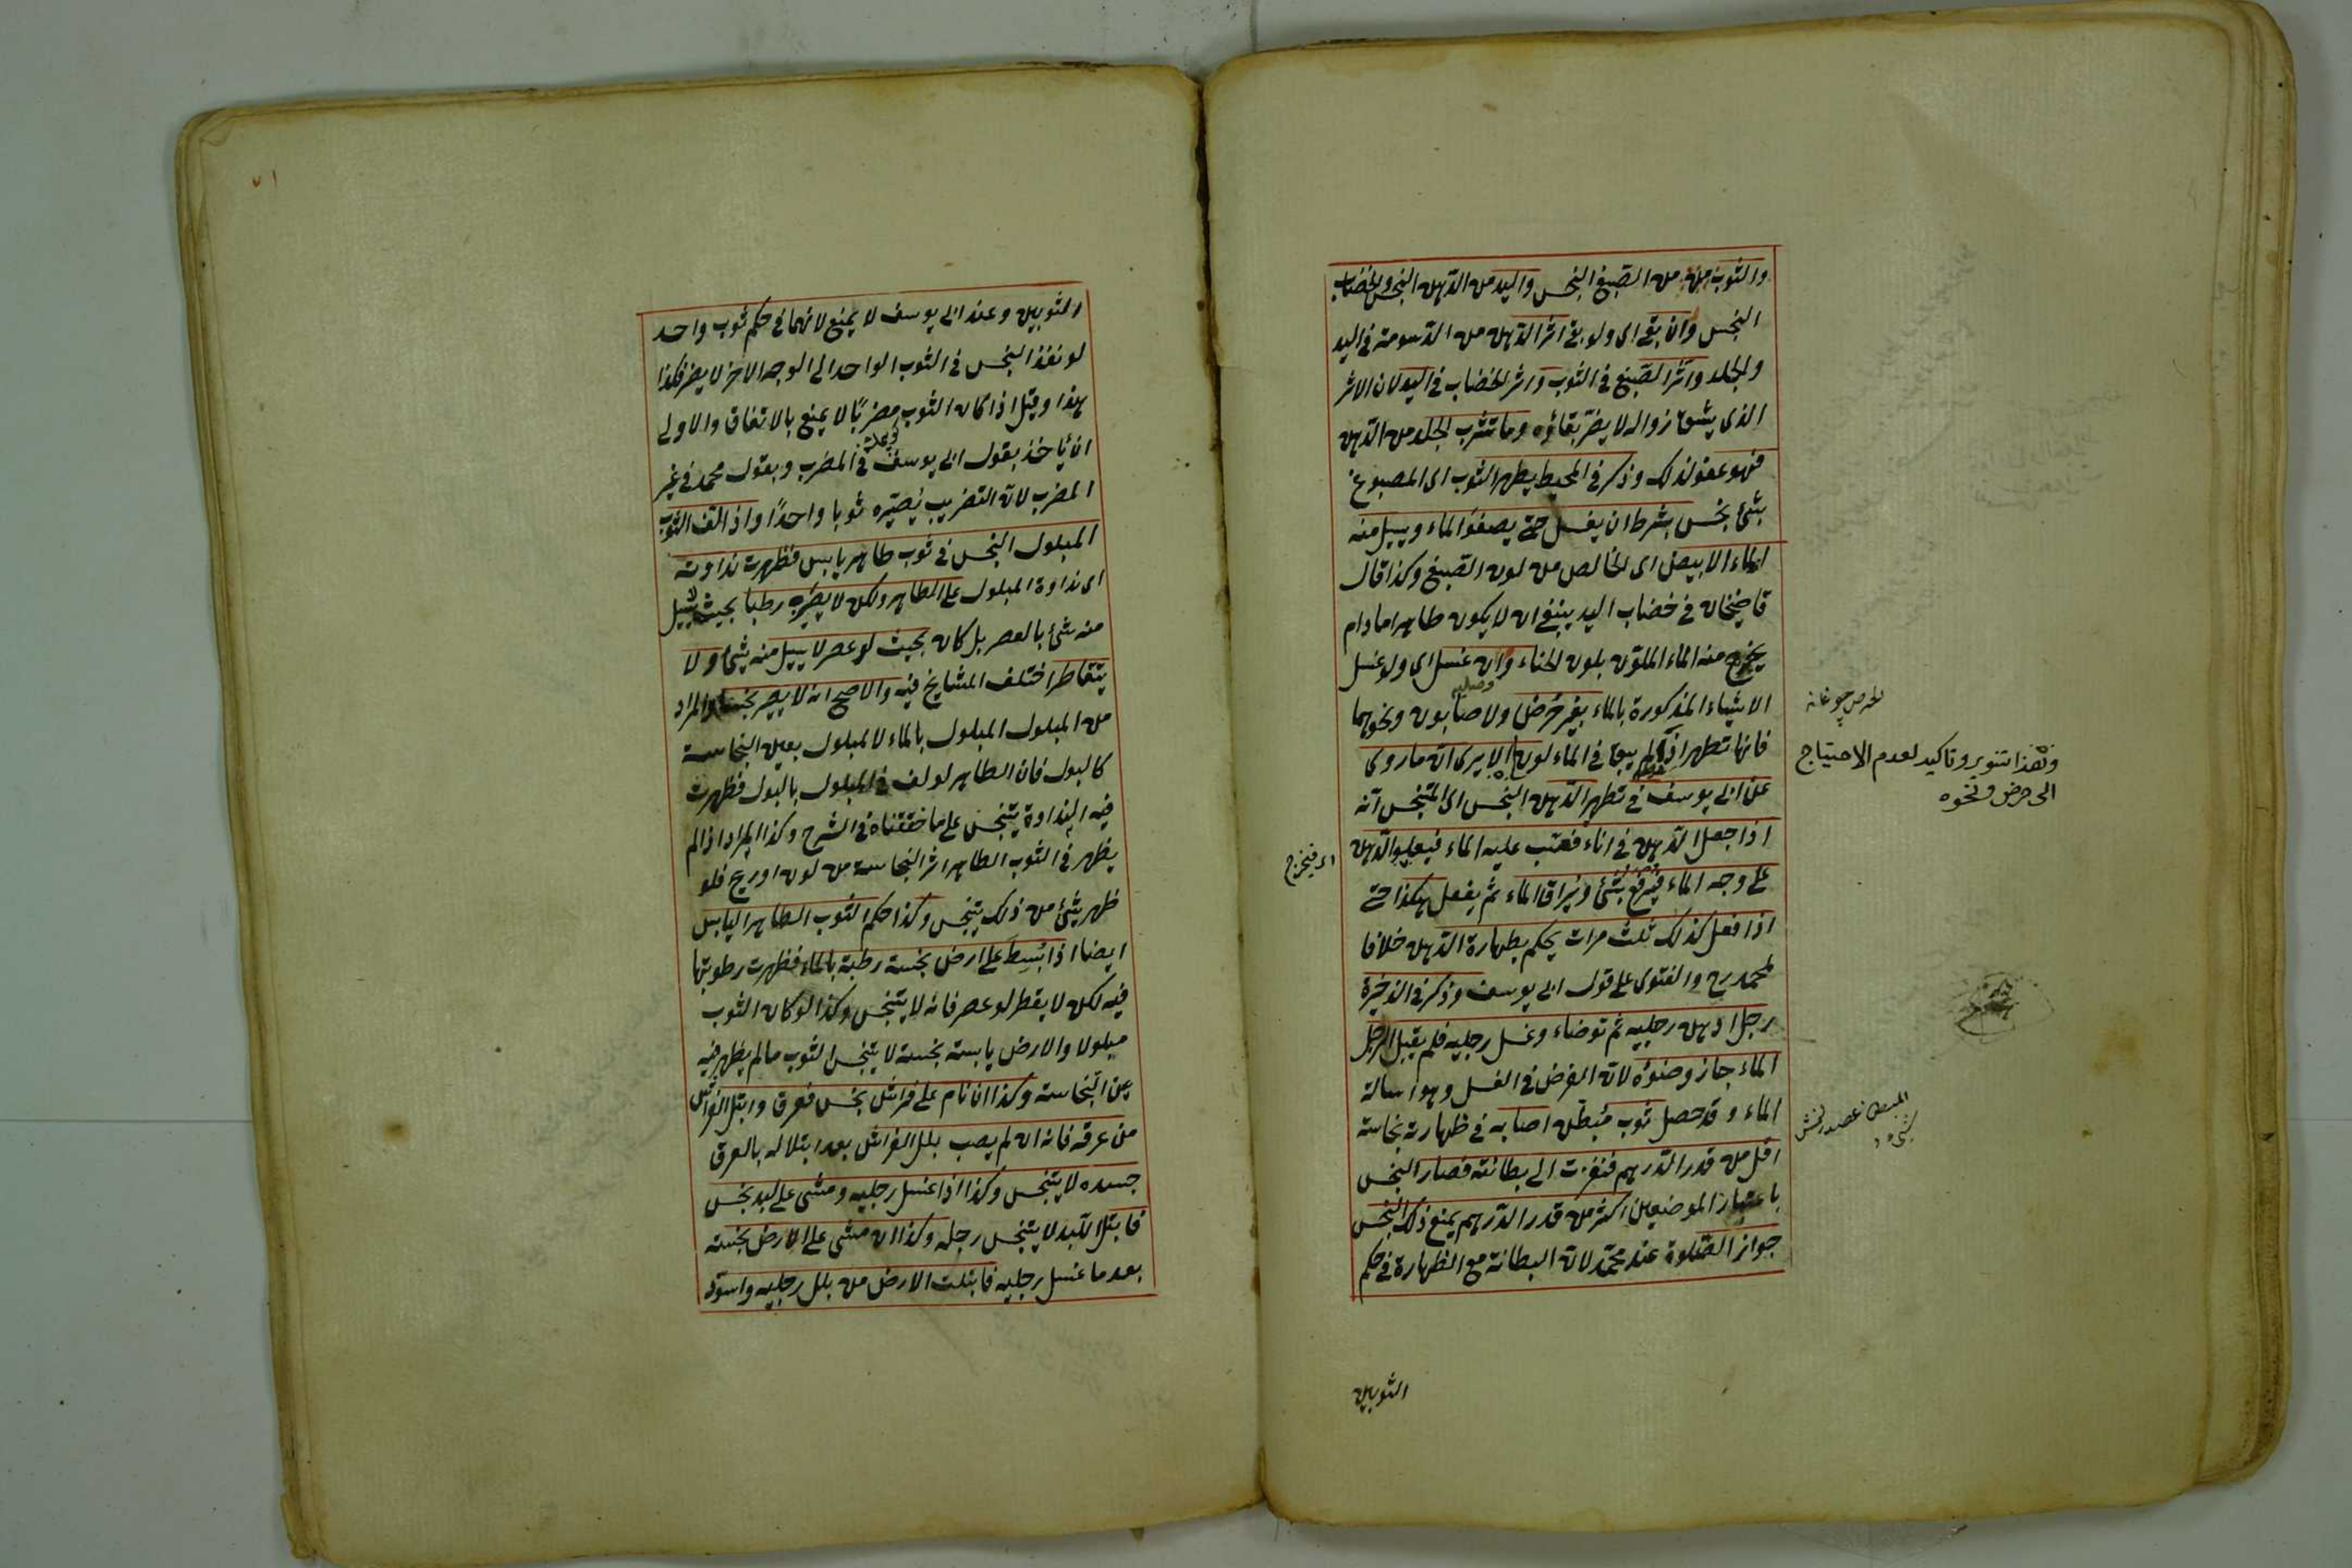 والثوب من الصبغ النجس واليد من الدهن النجس والخضاب
النجس وان بقى اى ولو بقى اثر الدهن من الدسومة فى اليد
والجلد واثر الصبغ فى الثوب واثر الخضاب فى اليد لان الاثر
الذى يشق زواله لا يضر بقاؤه وما تشرب الجلد من الدهن
فهو عفو لذلك وذكر فى المحيط يطهر الثوب اى المصبوغ
بشئ نجس بشرط ان يغسل حتى يصفو الماء ويسيل منه
الماء الابيض اى الخالص من لون الصبغ وكذا قال
قاضيخان فى خضاب اليد ينبغى ان لا يكون طاهرا ما دام
يخرج منه الماء الملون بلون الحناء وان غسل اى ولو غسل
الاشياء المذكورة بالماء بغير حرض ولا صابون ونحوهما
وصلية
فانها تطهر اذا لم يبق فى الماء لون الا يرى ان ما روى
عن ابى يوسف فى تطهير الدهن النجس اى المتنجس انه
اذا جعل الدهن فى اناء فصب عليه الماء فيعلو الدهن
على وجه الماء فيرفع بشئ ويراق الماء ثم يفعل هكذا حتى
اذا فعل كذلك ثلث مرات يحكم بطهارة الدهن خلافا
لمحمد رح والفتوى على قول ابى يوسف وذكر فى الذخيرة
رجل ادهن رجليه ثم توضاء وغسل رجليه فلم يقبل الرجل
الماء جاز وضوؤه لان الفرض فى الغسل وهو اسالة
الماء وقد حصل ثوب مبطن اصابه فى ظهارته نجاسة
اقل من قدر الدرهم فنفذت الى بطانته فصار النجس
باعتبار الموضعين اكثر من قدر الدرهم يمنع ذلك النجس
جواز الصلوة عند محمد لان البطانة مع الظهارة فى حكم
الثوبين
وهذا تنوير وتاكيد لعدم الاحتياج
الى حرض ونحوه
اى فيخرج
٧١
الثوبين وعند ابى يوسف لا يمنع لانهما فى حكم ثوب واحد
لو نفذ النجس فى الثوب الواحد الى الوجه الاخر لا يضر فكذا
هذا وقيل اذا كان الثوب مضربا لا يمنع بالاتفاق والاولى
ان يأخذ بقول ابى يوسف فى المضرب وبقول محمد فى غير
المضرب لان التضريب يصيره ثوبا واحدا واذا لف الثوب
المبلول النجس فى ثوب طاهر يابس فظهرت نداوته
اى نداوة المبلول على الطاهر ولكن لا يصير رطبا بحيث يسيل
منه شئ بالعصر بل كان بحيث لو عصر لا يسيل منه شئ ولا
يتقاطر اختلف المشايخ فيه والاصح انه لا يصير نجسا والمراد
من المبلول المبلول بالماء لا المبلول بعين النجاسة
كالبول فان الطاهر لو لف فى المبلول بالبول فظهرت
فيه النداوة يتنجس على ما حققناه فى الشرح وكذا المراد اذا لم
يظهر فى الثوب الطاهر اثر النجاسة من لون او ريح فلو
ظهر شئ من ذلك يتنجس وكذا حكم الثوب الطاهر اليابس
ايضا اذا بسط على ارض نجسة رطبة بالماء فظهرت رطوبتها
فيه لكن لا يقطر لو عصر فانه لا يتنجس وكذا لو كان الثوب
مبلولا والارض يابسة نجسة لا يتنجس الثوب ما لم يظهر فيه
عين النجاسة وكذا ان نام على فراش نجس فعرق وابتل الفراش
من عرقه فانه ان لم يصب بلل الفراش بعد ابتلاله بالعرق
جسده لا يتنجس وكذا اذا غسل رجليه ومشى على لبد نجس
فابتل اللبد لا يتنجس رجله وكذا ان مشى على الارض نجسة
بعد ما غسل رجليه فابتلت الارض من بلل رجليه واسود